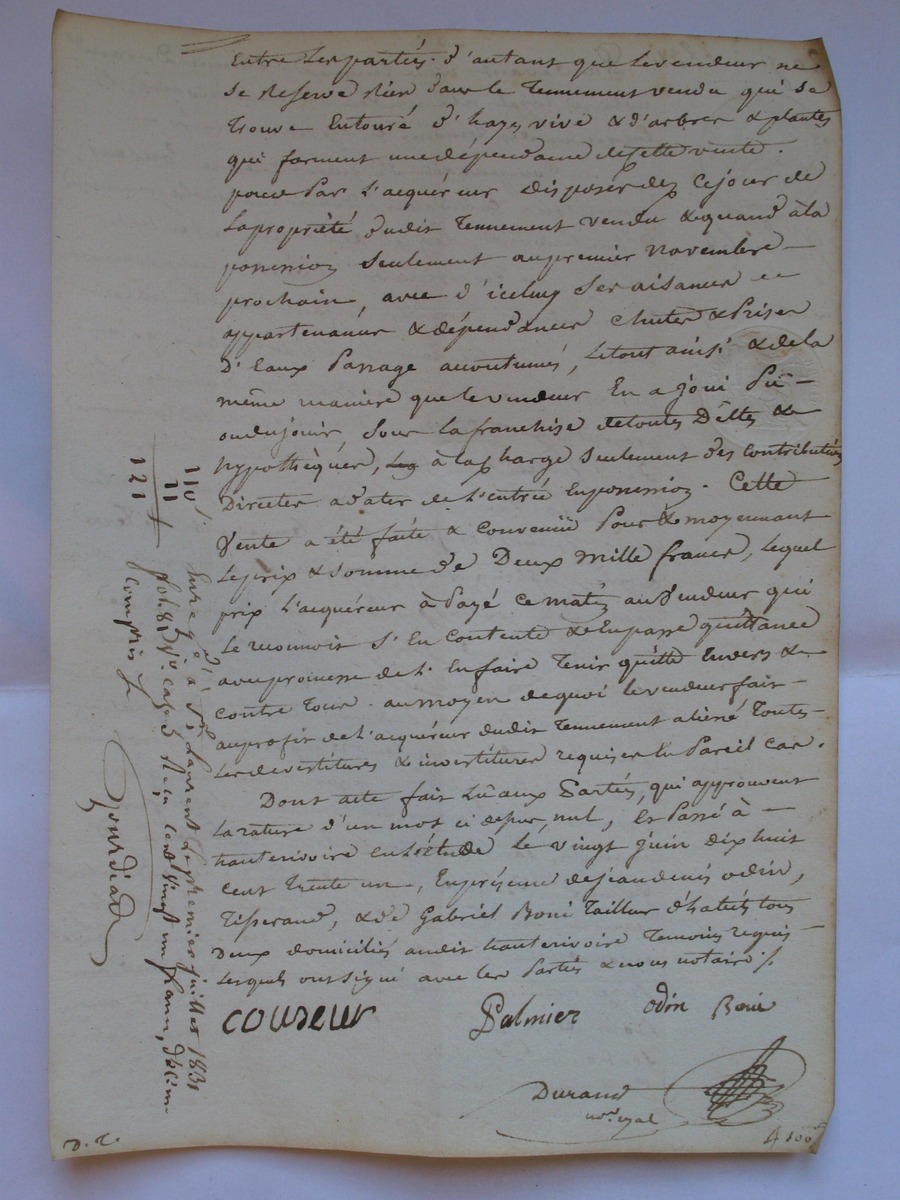 Entre les parties. d'autant que le vendeur ne
se reserve rien dans le tennement vendu qui se
trouve Entouré d'hayes vive & d'arbres & plantes
qui forment une dépendance de cette vente.
pour Par l'acquéreur disposer dez ce jour de
la propriété dudit tennement vendu & quand à la
possession seulement au premier novembre
prochain, avec d'iceluy ses aisances
appartenances & dépendances chutes & Prises
D'Eaux Passage accoutumés, le tout ainsi & de la
même maniere que le vendeur En a joui Pû
ou du jouir, sous la franchise de toutes Dêttes &
hypothèques, à la charge seulement des contributions
Directes a dater de l'entrée En possession. Cette
Vente a été faite & convenüe Pour & moyennant
Le prix & somme de Deux mille francs, lequel
prix l'acquéreur à Payé ce matin au Vendeur qui
Le reconnoit s'En contente & En passe quittance
avec promesse de l'En faire Tenir quitte Envers &
contre tous. au moyen de quoi le vendeur fait
au profit de l'acquéreur dudit tennement aliené toutes
Les devestitures & investitures requises En Pareil cas.
Dont acte fait Lû aux Parties, qui approuvent
la rature d'un mot ci dessus, nul, & Passé à
hauterivoire En l'étude Le vingt juin dix huit
cent trente un, En présence de jean denis odin,
Tisserand, & de Gabriel Boni Tailleur d'habits tous
Deux domiciliés audit hauterivoire Temoins requis
Lesquels ont signé avec les Parties & nous notaire ./.
couseur Palmier odin Boni
Durand
nore. royal
D. T.
110
11
121
Enregé. à St. Laurent Le premier juillet 1831
fol. 81 Vo. case 3 Reçu cent vingt un francs, décime
compris
Gourdiad